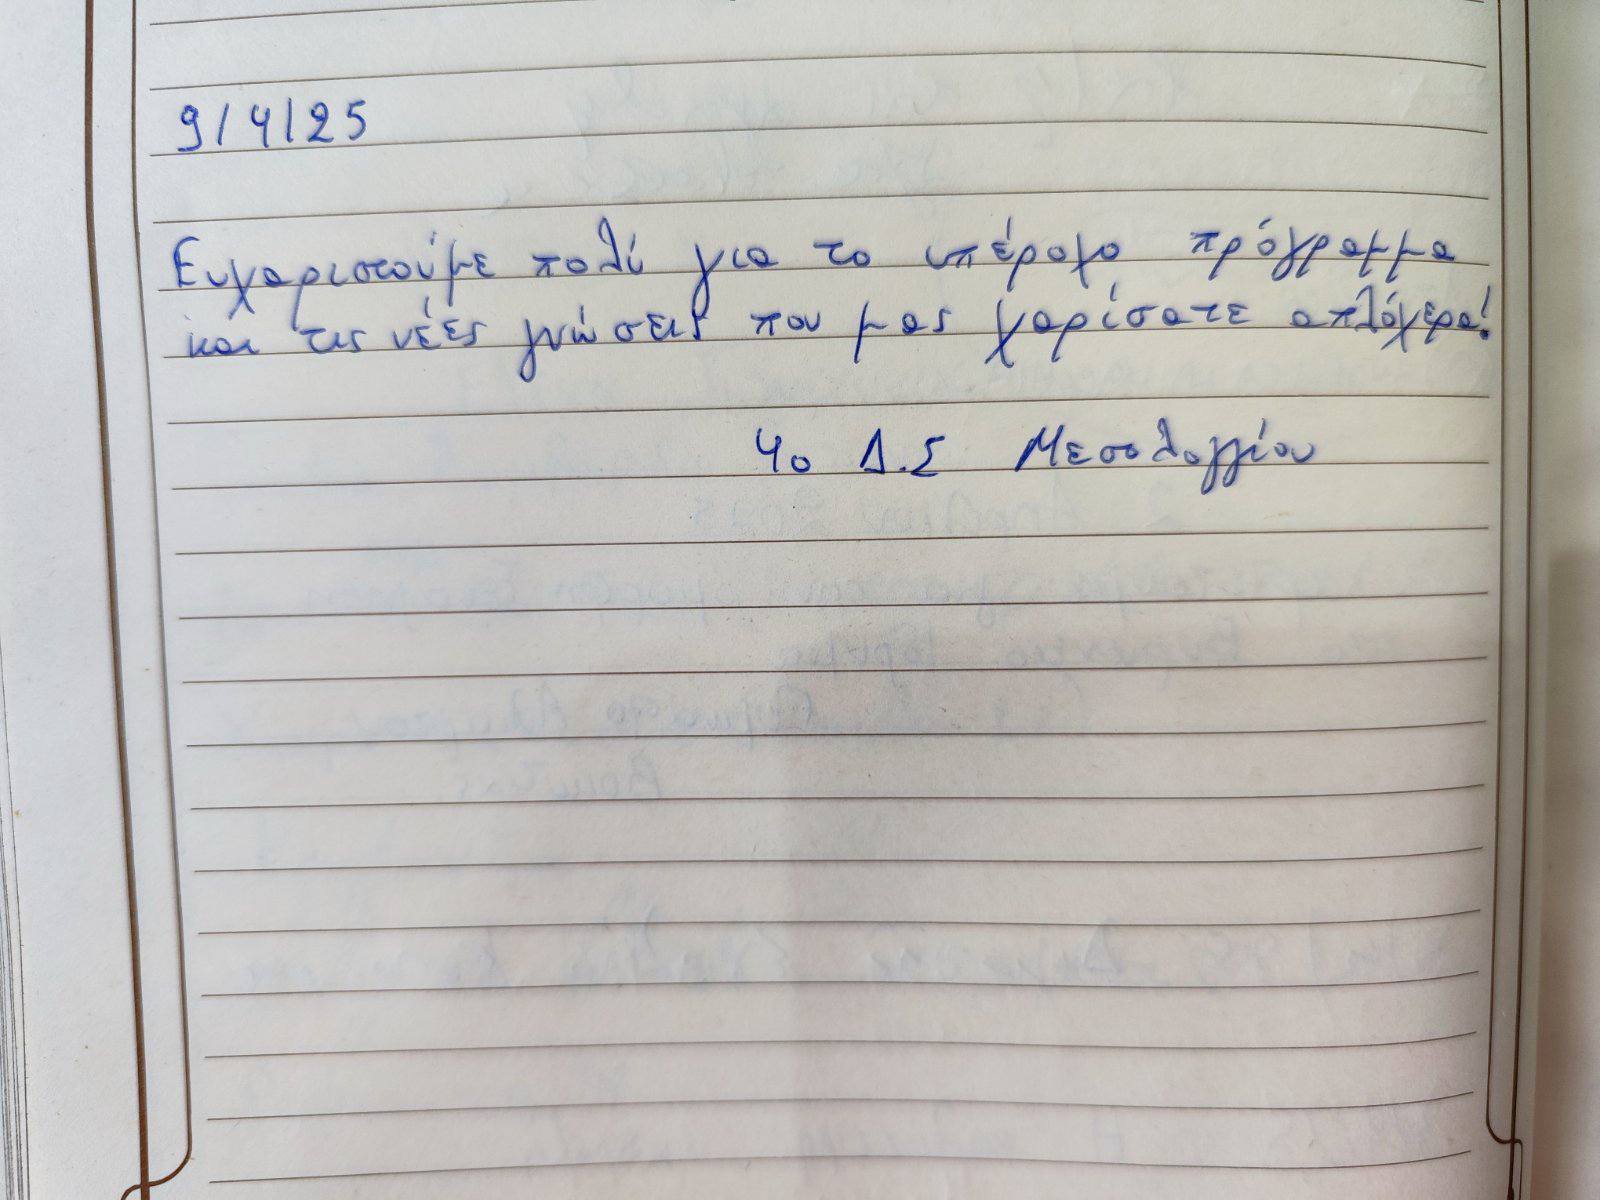 9/4/25
Ευχαριστούμε πολύ για το υπέροχο πρόγραμμα
και τις νέες γνώσεις που μας χαρίσατε απλόχερα!
4ο Δ.Σ Μεσολογγίου